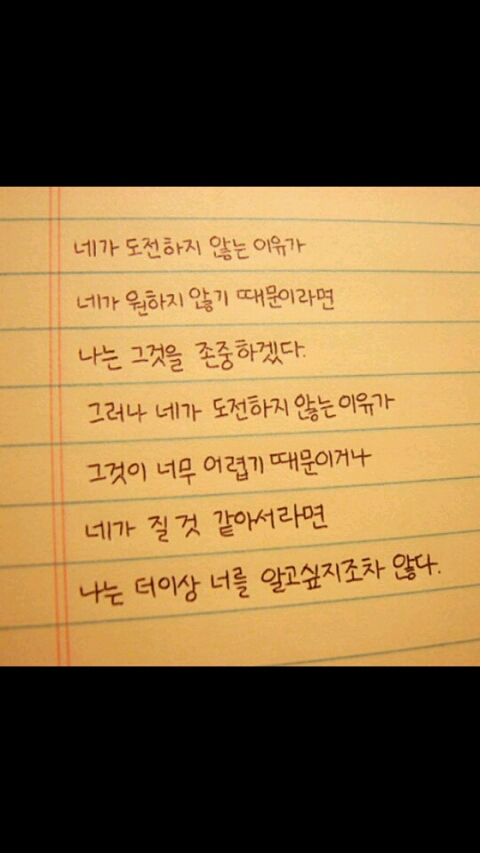 네가 도전하지 않는 이유가
네가 원하지 않기 때문이라면
나는 그것을 존중하겠다.
그러나 네가 도전하지 않는 이유가
그것이 너무 어렵기 때문이거나
네가 질 것 같아서라면
나는 더이상 너를 알고싶지조차 않다.